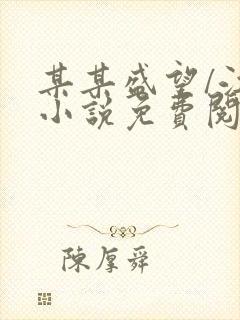 某某盛望/江
小說免費閱
陳厚舜